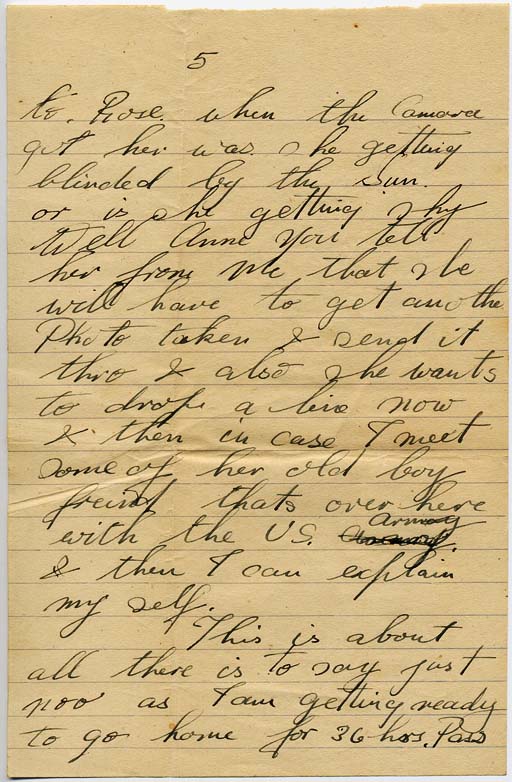 5
to. Rose. when the Camara
got her was she getting
blinded by the sun.
or is she getting shy
Well Anne You tell
her from Me that she
will have to get anothe
Photo taken & send it
thro & also she wants
to drop a line now
& then in case I meet
some of her old boy
freind thats over here
with the U.S. Army
& then I can explain
my self.
This is about
all there is to say just
noo as I am getting ready
to go home for 36 hrs. Pass